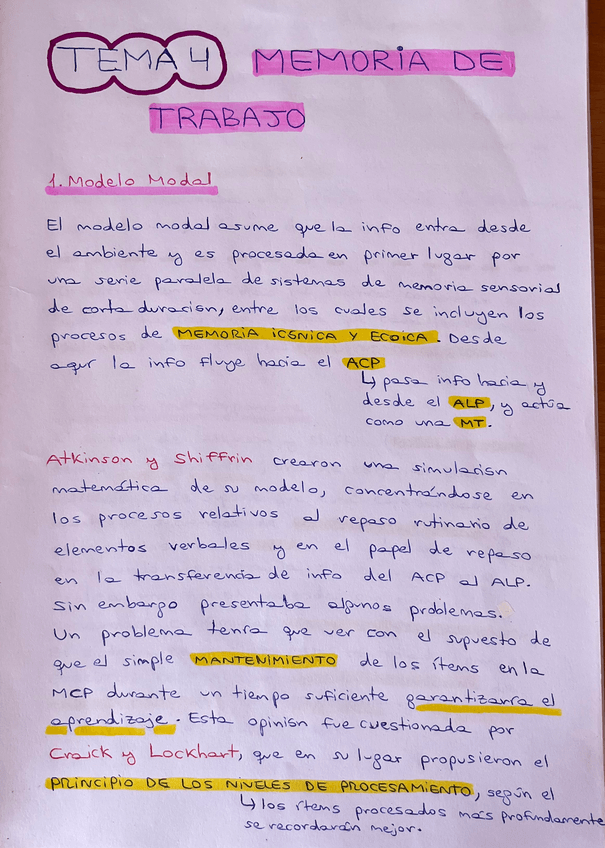 TEMA 4 MEMORIA DE
TRABAJO
1. Modelo Modal
El modelo modal asume que la info entra desde
el ambiente y es procesada en primer lugar por
una serie paralela de sistemas de memoria sensorial
de corta duración, entre los cuales se incluyen los
procesos de MEMORIA ICÓNICA Y ECOICA. Desde
aquí la info fluye hacia el ACP
↳ pasa info hacia y
desde el ALP, y actúa
como una MT.
Atkinson y Shiffrin crearon una simulación
matemática de su modelo, concentrándose en
los procesos relativos al repaso rutinario de
elementos verbales y en el papel de repaso
en la transferencia de info del ACP al ALP.
Sin embargo presentaba algunos problemas.
Un problema tenía que ver con el supuesto de
que el simple MANTENIMIENTO de los ítems en la
MCP durante un tiempo suficiente garantizaría el
aprendizaje. Esta opinión fue cuestionada por
Craick y Lockhart, que en su lugar propusieron el
PRINCIPIO DE LOS NIVELES DE PROCESAMIENTO, según el
↳ los ítems procesados más profundamente
se recordarán mejor.